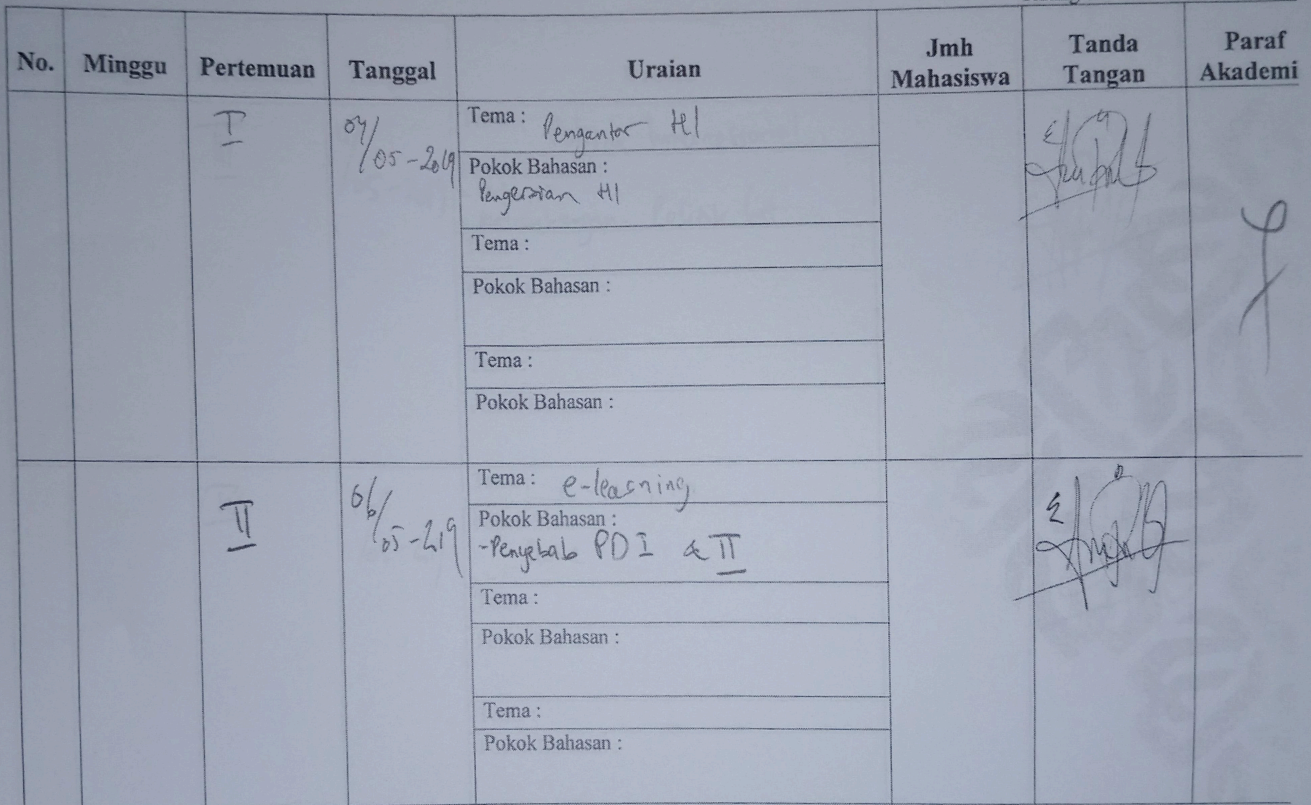 No. Minggu Pertemuan Tanggal Uraian Jmh Mahasiswa Tanda Tangan Paraf Akademi
I 04/05-2019 Tema : Pengantar HI
Pokok Bahasan :
Pengertian HI
Tema :
Pokok Bahasan :
Tema :
Pokok Bahasan :
II 06/05-219 Tema : e-learning
Pokok Bahasan :
-Penyebab PD I & II
Tema :
Pokok Bahasan :
Tema :
Pokok Bahasan :